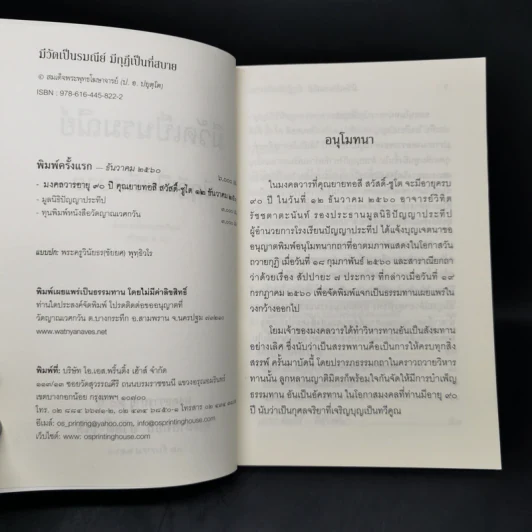 มีวัดเป็นรมณีย์ มีกุฏีเป็นที่สบาย
© สมเด็จพระพุทธโฆษาจารย์ (ป. อ. ปยุตฺโต)
ISBN : 978-616-445-822-2
พิมพ์ครั้งแรก — ธันวาคม ๒๕๖๐
- มงคลวารอายุ ๙๐ ปี คุณยายทอสี สวัสดิ์-ชูโต ๑๒ ธันวาคม
- มูลนิธิปัญญาประทีป
- ทุนพิมพ์หนังสือวัดญาณเวศกวัน
แบบปก: พระครูวินัยธร (ชัยยศ) พุทฺธิวโร
พิมพ์เผยแพร่เป็นธรรมทาน โดยไม่มีค่าลิขสิทธิ์
ท่านใดประสงค์จัดพิมพ์ โปรดติดต่อขออนุญาตที่
วัดญาณเวศกวัน ต.บางกระทึก อ.สามพราน จ.นครปฐม ๗๓๒๑๐
www.watnyanaves.net
พิมพ์ที่: บริษัท โอ.เอส.พริ้นติ้ง เฮ้าส์ จำกัด
๑๑๓/๑๓ ซอยวัดสุวรรณคีรี ถนนบรมราชชนนี แขวงอรุณอมรินทร์
เขตบางกอกน้อย กรุงเทพฯ ๑๐๗๐๐
อีเมล์: os_printing@yahoo.com, info@osprintinghouse.com
เว็บไซต์: www.osprintinghouse.com
อนุโมทนา
ในมงคลวารที่คุณยายทอสี สวัสดิ์-ชูโต จะมีอายุครบ
๙๐ ปี ในวันที่ ๑๒ ธันวาคม ๒๕๖๐ อาจารย์วิทิต
รัชชตาตะนันท์ รองประธานมูลนิธิปัญญาประทีป
ผู้อำนวยการโรงเรียนปัญญาประทีป ได้แจ้งบุญเจตนาขอ
อนุญาตพิมพ์อนุโมทนากถาที่อาตมภาพแสดงในโอกาสวัน
ถวายกุฏี เมื่อวันที่ ๑๘ กุมภาพันธ์ ๒๕๖๐ และสาราณียกถา
ว่าด้วยเรื่อง สัปปายะ ๗ ประการ ที่กล่าวเมื่อวันที่ ๑๙
กรกฎาคม ๒๕๖๐ เพื่อจัดพิมพ์แจกเป็นธรรมทานเผยแพร่ใน
วงกว้างออกไป
โยมเจ้าของมงคลวารได้ทำวิหารทานอันเป็นสังฆทาน
อย่างเลิศ ซึ่งนับว่าเป็นสรรพทานคือเป็นการให้ครบทุกสิ่ง
สรรพ์ ครั้นมาบัดนี้ โดยปรารภธรรมกถาในคราวถวายวิหาร
ทานนั้น ลูกหลานญาติมิตรก็พร้อมใจกันจัดให้มีการบำเพ็ญ
ธรรมทาน อันเป็นอัครทาน ในโอกาสมงคลที่ท่านมีอายุ ๙๐
ปี นับว่าเป็นกุศลจริยาที่เจริญบุญเป็นทวีคูณ